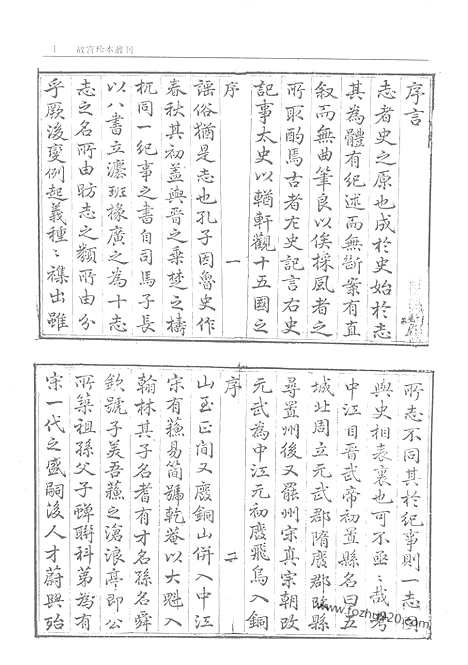 1 故宮珍本叢刊
序言
志者史之原也成於史始於志
其為體有紀述而無斷案有直
叙而無曲筆良以俟採風者之
所取酌焉古者左史記言右史
記事太史以輶軒觀十五國之
序 一
謡俗猶是志也孔子因魯史作
春秋其初蓋與晉之乗楚之檮
杌同一紀事之書自司馬子長
以八書立漂班掾廣之為十志
志之名所由昉志之類所由分
乎厥後變例起義種〻襍出雖
所志不同其於紀事則一志固
與史相表裏也可不亟〻哉考
中江自晉武帝初置縣名曰五
城北周立元武郡隋廢郡縣
尋置州後又罷州宋真宗朝改
元武為中江元初廢飛烏入銅
序 二
山至正間又廢銅山併入中江
宋有蘓易簡號乾菴以大魁入
翰林其子名耆有才名孫名舜
欽號子美吾蘓之滄浪亭即公
所築祖孫父子蟬聯科第為有
宋一代之盛嗣後人才蔚興殆
www.fozhu920.com